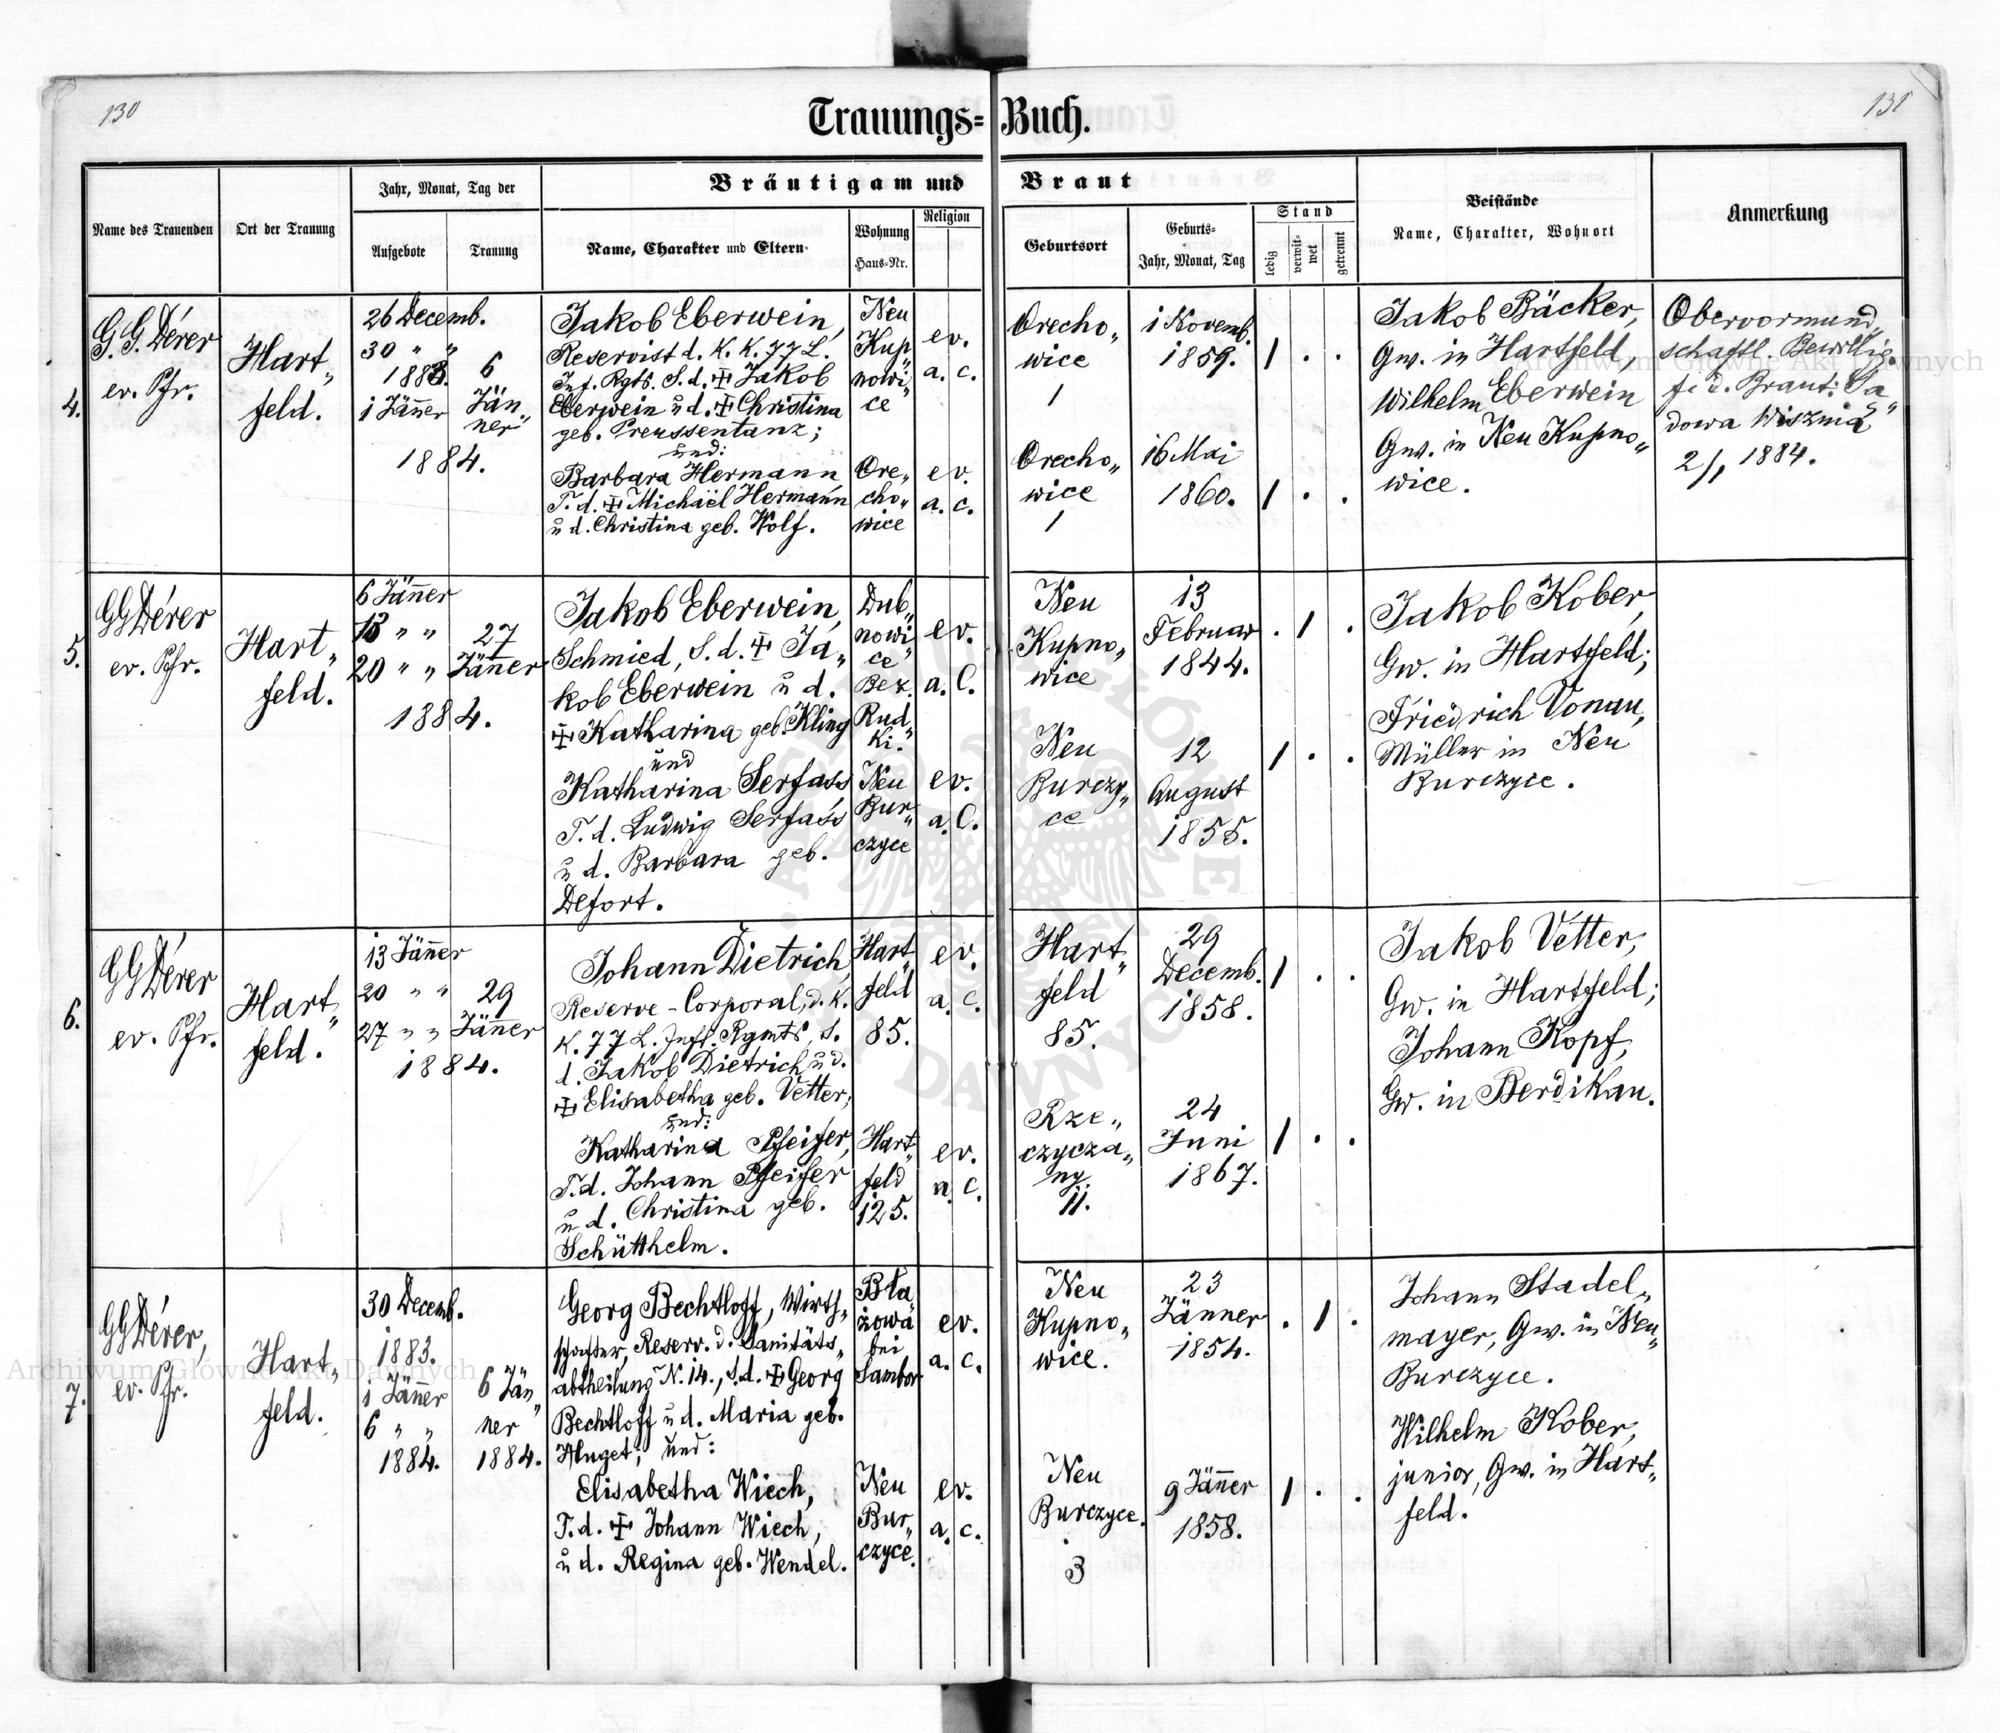 130
Trauungs-Buch.
131
Name des Trauenden
Ort der Trauung
Jahr, Monat, Tag der
Aufgebote
Trauung
Bräutigam und Braut
Name, Charakter und Eltern
Wohnung
Haus-Nr.
Religion
Geburtsort
Geburts-
Jahr, Monat, Tag
Stand
ledig
verwit-
wet
getrennt
Beistände
Name, Charakter, Wohnort
Anmerkung
4.
G. G. Dérer
ev. Pfr.
Hart„
feld.
26 Decemb.
30 „ „
1883.
1 Jänner
6
Jän„
ner
1884.
Jakob Eberwein,
Reservist d. K. K. 77 L.
Inf. Rgts. S. d. ✠ Jakob
Eberwein u d. ✠ Christina
geb. Preussentanz;
und:
Barbara Hermann,
T. d. ✠ Michäel Hermann
u d. Christina geb. Wolf.
Neu
Kup„
nowi„
ce
Ore„
cho„
wice
ev.
a. c.
ev.
a. c.
Orecho„
wice
1
Orecho„
wice
1
1 Novemb.
1859.
16 Mai
1860.
1 . .
1 . .
Jakob Bäcker,
Gw. in Hartfeld
Wilhelm Eberwein
Gw. in Neu Kupno„
wice.
Obervormund„
schaftl. Bewillig.
f. d. Braut: Sa„
dowa Wisznia
2/1 1884.
5.
GG Dérer
ev. Pfr.
Hart„
feld.
6 Jänner
13 „ „
20 „ „
27
Jänner
1884.
Jakob Eberwein,
Schmied, S. d. ✠ Ja„
kob Eberwein u d.
✠ Katharina geb. Kling
und
Katharina Serfass
T. d. Ludwig Serfass
u d. Barbara geb.
Defort.
Dub„
nowi„
ce
Bez.
Rud„
ki.
Neu
Bur„
czyce
ev.
a. C.
ev.
a. C.
Neu
Kupno„
wice
Neu
Burczy„
ce
13
Februar
1844.
12
August
1855.
. 1 .
1 . .
Jakob Kober,
Gw. in Hartfeld;
Friedrich Vonau,
Müller in Neu
Burczyce.
6.
GG Dérer
ev. Pfr.
Hart„
feld.
13 Jänner
20 „ „
27 „ „
29
Jänner
1884.
Johann Dietrich,
Reserve-Corporal, d. K.
K. 77 L. Inft. Rgmts, S.
d. Jakob Dietrich u d.
✠ Elisabetha geb. Vetter;
und:
Katharina Pfeifer,
T. d. Johann Pfeifer
u d. Christina geb.
Schütthelm.
Hart„
feld
85.
Hart„
feld
125.
ev.
a. c.
ev.
a. c.
Hart„
feld
85.
Rze„
czycza„
ny.
11.
29
Decemb.
1858.
24
Juni
1867.
1 . .
1 . .
Jakob Vetter,
Gw. in Hartfeld;
Johann Kopf,
Gw. in Berdikau.
7.
GG Dérer,
ev. Pfr.
Hart„
feld.
30 Decemb.
1883.
1 Jänner
6 „ „
1884.
6 Jän„
ner
1884.
Georg Bechtloff, Wirth„
schafter, Reserv. d. Sanitäts„
abtheilung N. 14., S. d. ✠ Georg
Bechtloff u d. Maria geb.
Huget; und:
Elisabetha Wiech,
T. d. ✠ Johann Wiech,
u d. Regina geb. Wendel.
Bła„
żowa
bei
Sambor
Neu
Bur„
czyce.
ev.
a. c.
ev.
a. c.
Neu
Kupno„
wice.
Neu
Burczyce.
3
23
Jänner
1854.
9 Jänner
1858.
. 1 .
1 . .
Johann Stadel„
mayer, Gw. in Neu„
Burczyce.
Wilhelm Kober,
junior, Gw. in Hart„
feld.
Archiwum Główne Akt Dawnych
Archiwum Główne Akt Dawnych
ARCHIWUM GŁÓWNE AKT DAWNYCH